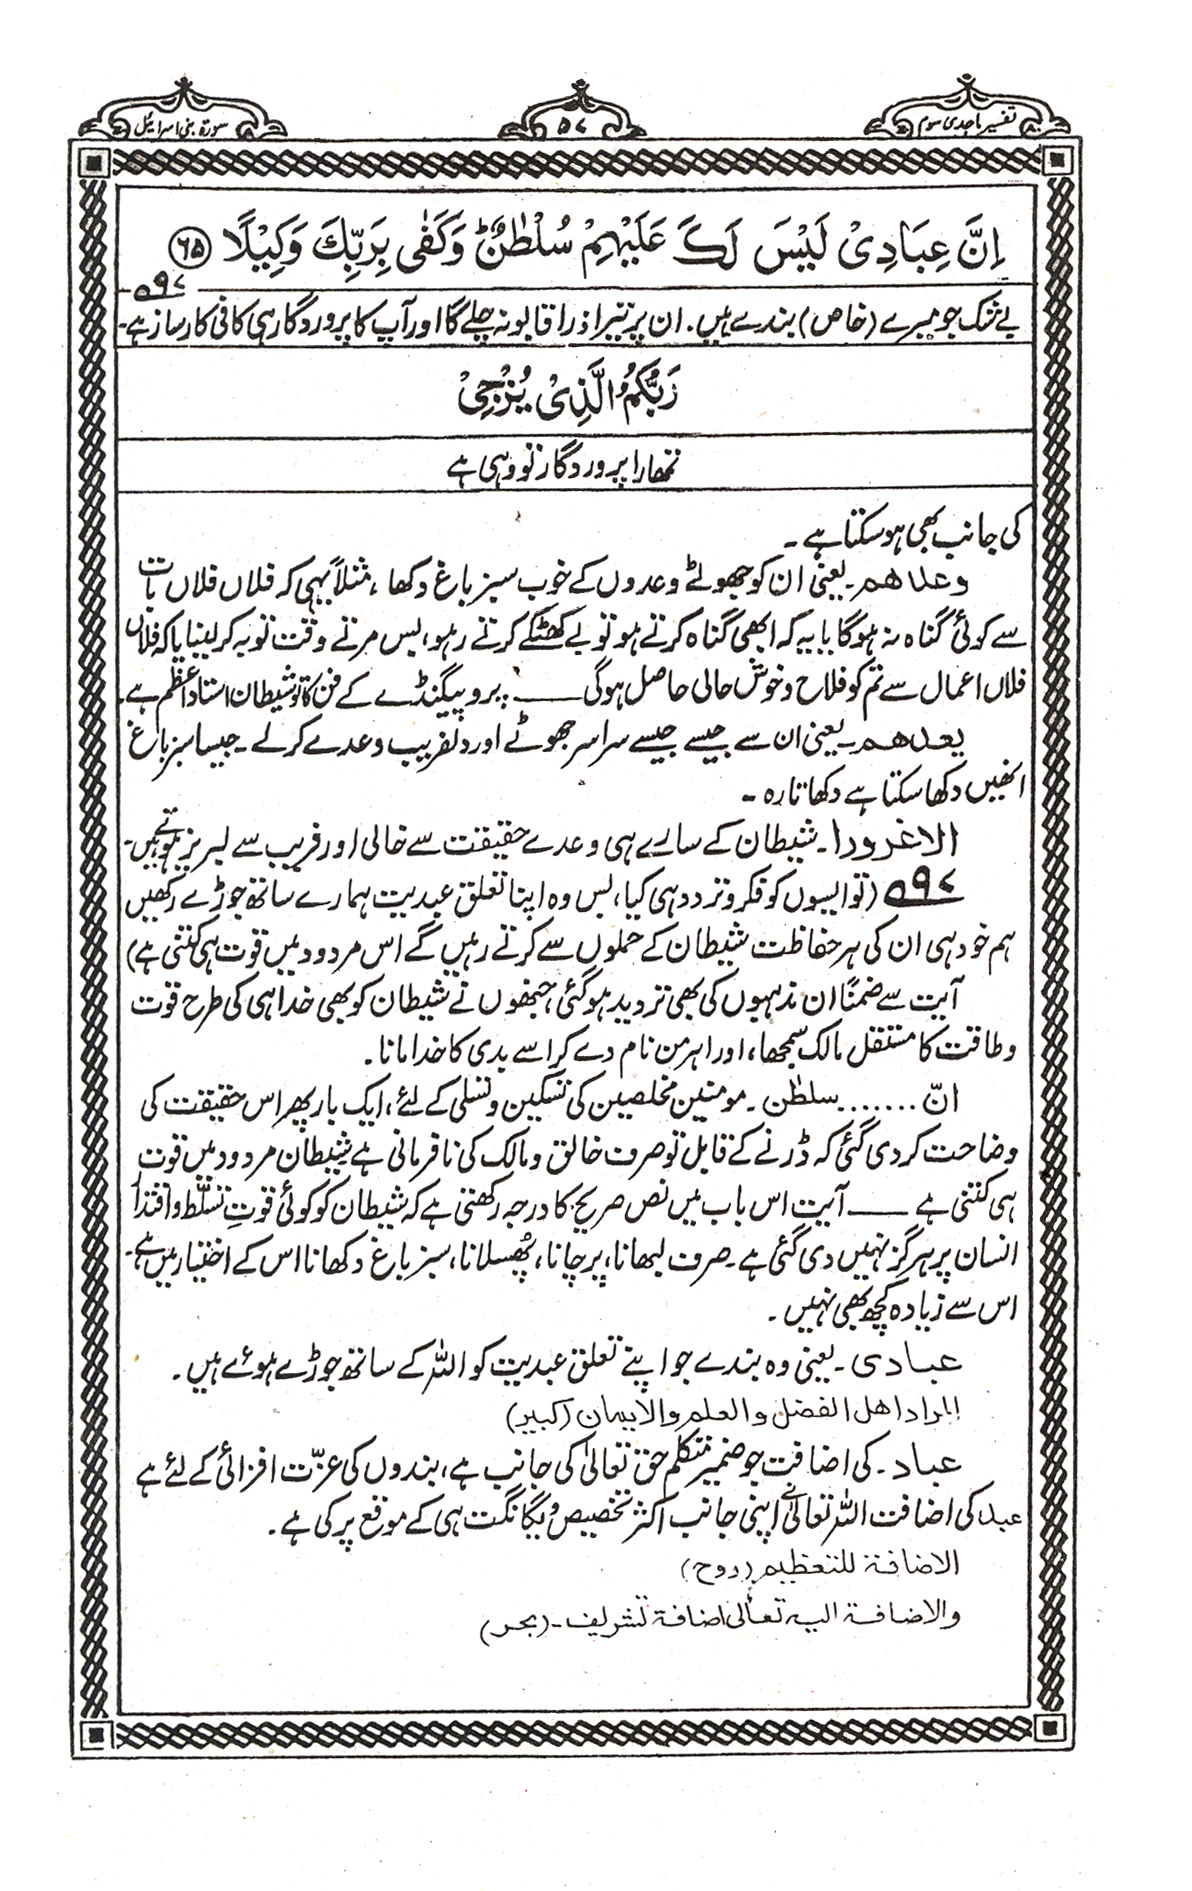 تفسیر ماجدی سوم
۵۷
سورۃ بنی اسرائیل
اِنَّ عِبَادِیْ لَیْسَ لَکَ عَلَیْہِمْ سُلْطٰنٌ ؕ وَکَفٰی بِرَبِّکَ وَکِیْلًا ﴿۶۵﴾
۹۷
بے شک جو میرے (خاص) بندے ہیں۔ ان پر تیرا ذرا قابو نہ چلے گا اور آپ کا پروردگار ہی کافی کارساز ہے۔
رَبُّکُمُ الَّذِیْ یُزْجِیْ
تمھارا پروردگار تو وہی ہے
کی جانب بھی ہوسکتا ہے۔
وعدھم۔ یعنی ان کو جھوٹے وعدوں کے خوب سبز باغ دکھا، مثلاً یہی کہ فلاں فلاں بات
سے کوئی گناہ نہ ہوگا یا یہ کہ ابھی گناہ کرتے ہو تو بے کھٹکے کرتے رہو، بس مرتے وقت توبہ کرلینا یا کہ فلاں
فلاں اعمال سے تم کو فلاح وخوش حالی حاصل ہوگی ــــــ پروپیگنڈے کے فن کا تو شیطان استاد اعظم ہے۔
یعدھم۔ یعنی ان سے جیسے جیسے سراسر جھوٹے اور دلفریب وعدے کرلے۔ جیسا سبز باغ
انھیں دکھا سکتا ہے دکھاتا رہ۔
الاغرورا۔ شیطان کے سارے ہی وعدے حقیقت سے خالی اور فریب سے لبریز ہوتے ہیں۔
۹۷ (تو ایسوں کو فکر وتردد ہی کیا، بس وہ اپنا تعلق عبدیت ہمارے ساتھ جوڑے رکھیں
ہم خود ہی ان کی ہر حفاظت شیطان کے حملوں سے کرتے رہیں گے اس مردود میں قوت ہی کتنی ہے)
آیت سے ضمنًا ان مذہبوں کی بھی تردید ہوگئی، جنھوں نے شیطان کو بھی خدا ہی کی طرح قوت
وطاقت کا مستقل مالک سمجھا، اور اہرمن نام دے کر اسے بدی کا خدا مانا۔
انّ ....... سلطٰن۔ مومنین مخلصین کی تسکین وتسلی کے لئے، ایک بار پھر اس حقیقت کی
وضاحت کردی گئی کہ ڈرنے کے قابل تو صرف خالق ومالک کی نافرمانی ہے شیطان مردود میں قوت
ہی کتنی ہے ــــــ آیت اس باب میں نص صریح کا درجہ رکھتی ہے کہ شیطان کو کوئی قوتِ تسلّط واقتدار
انسان پر ہرگز نہیں دی گئی ہے۔ صرف لبھانا، پرچانا، پُھسلانا، سبز باغ دکھانا اس کے اختیار میں ہے۔
اس سے زیادہ کچھ بھی نہیں۔
عبادی۔ یعنی وہ بندے جو اپنے تعلق عبدیت کو اللہ کے ساتھ جوڑے ہوئے ہیں۔
المراد اھل الفضل والعلم والایمان (کبیر)
عباد۔ کی اضافت جو ضمیر متکلم حق تعالیٰ کی جانب ہے، بندوں کی عزّت افزائی کے لئے ہے
عبد کی اضافت اللہ تعالیٰ نے اپنی جانب اکثر تخصیص ویگانگت ہی کے موقع پر کی ہے۔
الاضافۃ للتعظیم (روح)
والاضافۃ الیہ تعالٰی اضافۃ تشریف۔ (بحر)